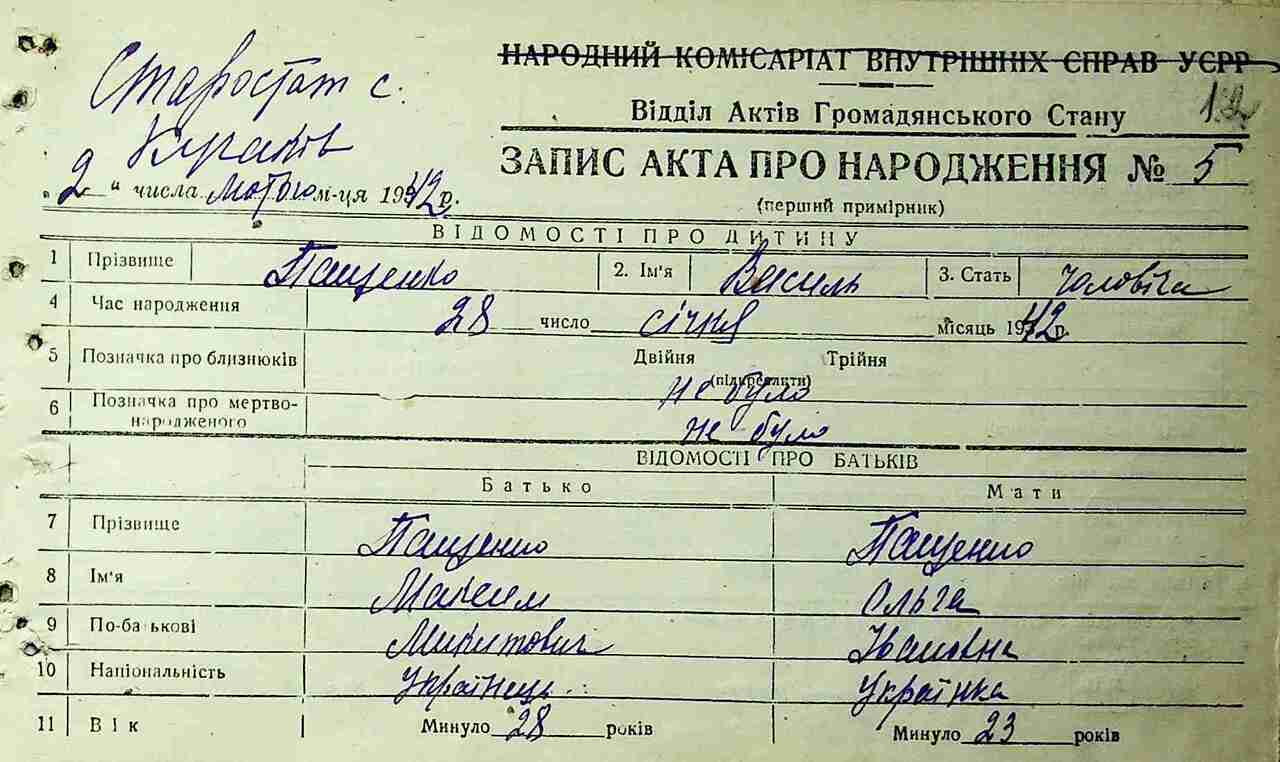 Старостат с.
НАРОДНИЙ КОМІСАРІАТ ВНУТРІШНІХ СПРАВ УСРР
Відділ Актів Громадянського Стану 12
ЗАПИС АКТА ПРО НАРОДЖЕННЯ № 5
„2“ числа лютого м-ця 1942 р.
(перший примірник)
ВІДОМОСТІ ПРО ДИТИНУ
1 Прізвище Пащенко 2. Ім'я Василь 3. Стать Чоловіча
4 Час народження 28 число січня місяць 1942 р.
5 Позначка про близнюків Двійня Трійня
(підкреслити)
не було
6 Позначка про мертво-
народженого не було
ВІДОМОСТІ ПРО БАТЬКІВ
Батько Мати
7 Прізвище Пащенко Пащенко
8 Ім'я Максим Ольга
9 По-батькові Микитович Івановна
10 Національність Українець Українка
11 Вік Минуло 28 років Минуло 23 років